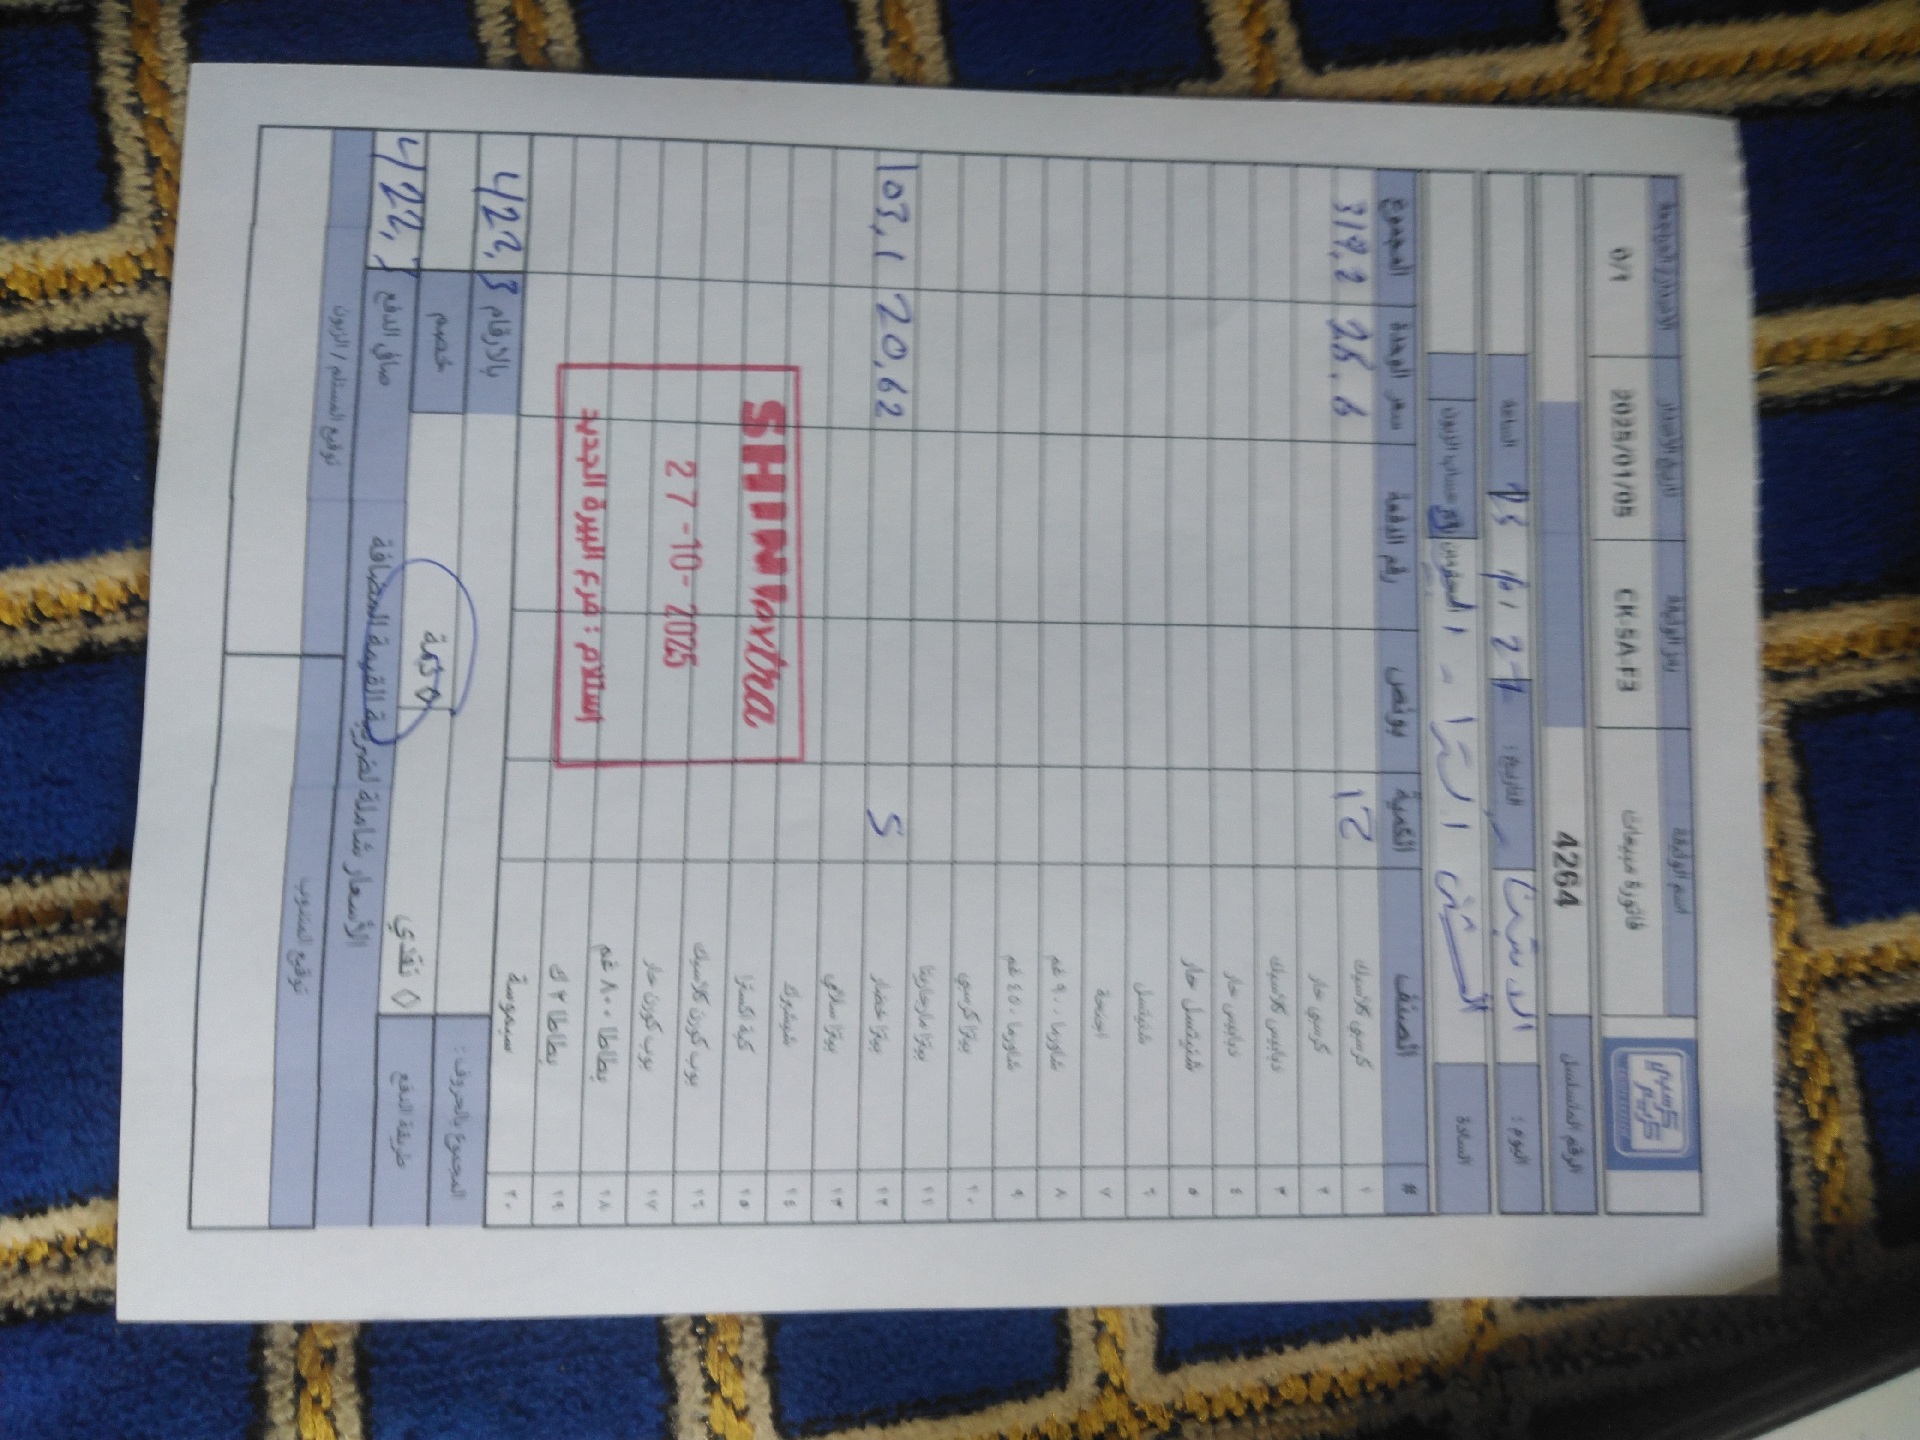 اسم الوثيقة رمز الوثيقة تاريخ الإصدار الإصدار / المراجعة
فاتورة مبيعات CK-SA-F3 2025/01/05 0/1
كرسبي كريم
الرقم المتسلسل 4264
اليوم : الاثنين التاريخ : 27 / 10 / 25 الساعة
السادة رقم حساب الزبون
# الصنف الكمية بونص رقم الدفعة سعر الوحدة المجموع
١ كرسبي كلاسيك 12 26.6 319.2
٢ كرسبي حار
٣ دبابيس كلاسيك
٤ دبابيس حار
٥ شنيتسل حار
٦ شنيتسل
٧ اجنحة
٨ شاورما ٩٠٠ غم
٩ شاورما ٤٥٠ غم
١٠ بيتزا كرسبي
١١ بيتزا مارجريتا
١٢ بيتزا خضار 5 20.62 103.1
١٣ بيتزا سلامي
١٤ شيشبرك
١٥ كبة اكسترا
١٦ بوب كورن كلاسيك
١٧ بوب كورن حار
١٨ بطاطا ٨٠٠ غم
١٩ بطاطا ٢ ك
٢٠ سمبوسة
SHINI extra
27-10-2025
استلام : فرع البيرة الجديد
المجموع بالحروف : بالارقام 422.3
خصم
طريقة الدفع ◇ نقدي ◇ ذمة صافي الدفع 422.3
الأسعار شاملة لضريبة القيمة المضافة
توقيع المندوب توقيع المستلم / الزبون